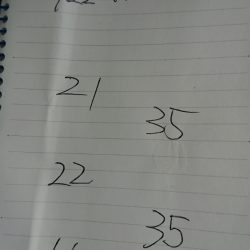 21
35
22
35